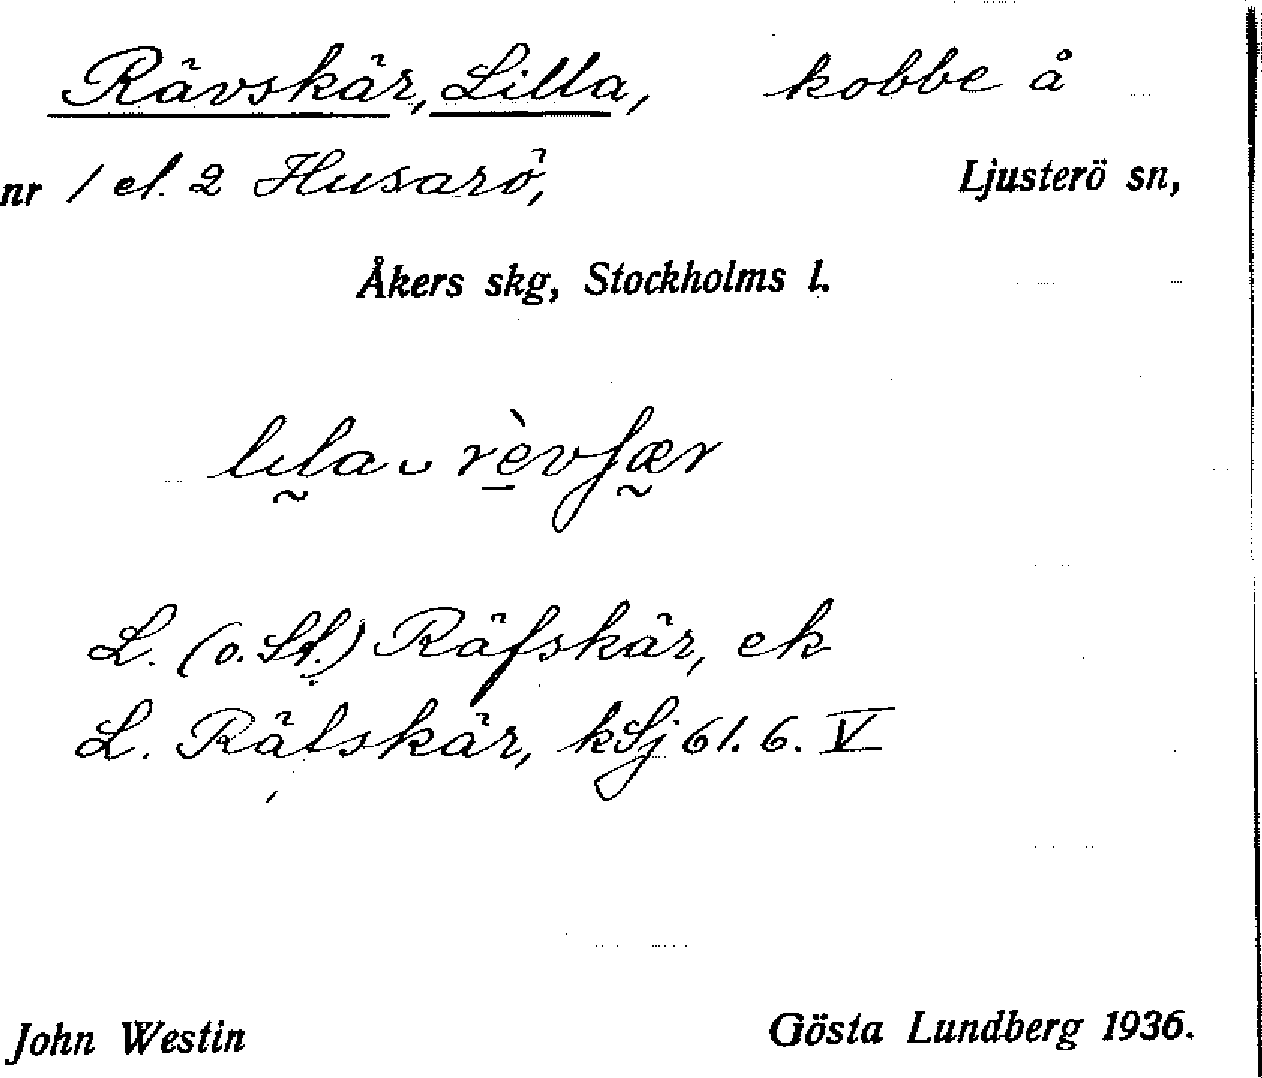 Rävskär, Lilla, kobbe å
nr 1 el. 2 Husarö, Ljusterö sn,
Åkers skg, Stockholms l.
lɩla ᴗ rèvʃær
L. (o. St.) Räfskär, ek
L. Räfskär, kSj 61. 6. V
John Westin Gösta Lundberg 1936.